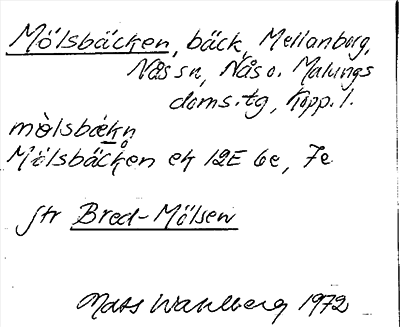 Mölsbäcken, bäck, Mellanborg,
Nås sn, Nås o. Malungs
doms.tg, Kopp. l.
mòlsbækn
Mölsbäcken ek 12E 6e, 7e
jfr Bred-Mölsen
Mats Wahlberg 1972